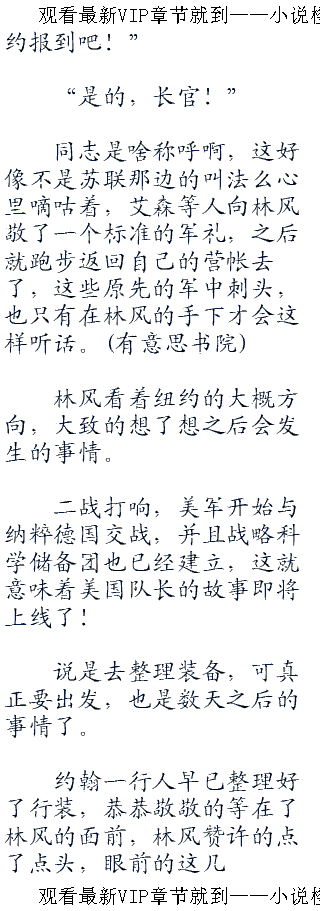 观看最新VIP章节就到——小说
约报到吧！”
“是的，长官！”
同志是啥称呼啊，这好
像不是苏联那边的叫法么心
里嘀咕着，艾森等人向林风
敬了一个标准的军礼，之后
就跑步返回自己的营帐去
了，这些原先的军中刺头，
也只有在林风的手下才会这
样听话。(有意思书院)
林风看着纽约的大概方
向，大致的想了想之后会发
生的事情。
二战打响，美军开始与
纳粹德国交战，并且战略科
学储备团也已经建立，这就
意味着美国队长的故事即将
上线了！
说是去整理装备，可真
正要出发，也是数天之后的
事情了。
约翰一行人早已整理好
了行装，恭恭敬敬的等在了
林风的面前，林风赞许的点
了点头，眼前的这几
观看最新VIP章节就到——小说